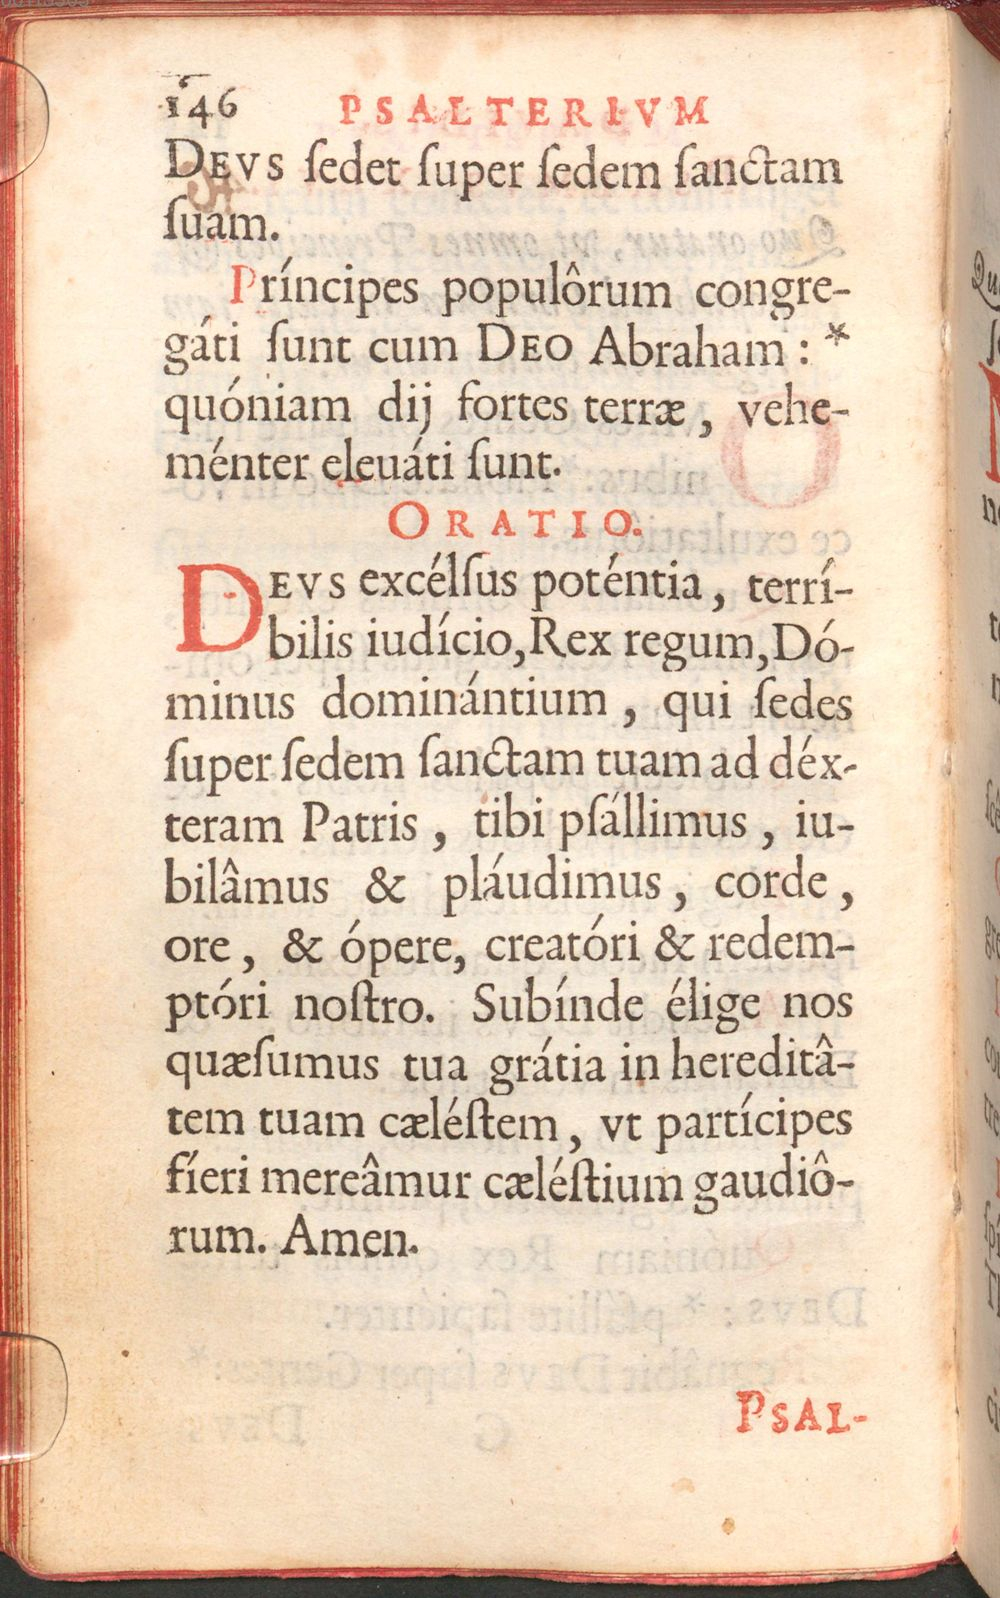 146 PSALTERIVM
DEVS ſedet ſuper ſedem ſanctam
ſuam.
Príncipes populôrum congre-
gáti ſunt cum DEO Abraham : *
quóniam dij fortes terræ , vehe-
ménter eleuáti ſunt.
ORATIO.
DEVS excélſus poténtia, terrí-
bilis iudício, Rex regum, Dó-
minus dominántium , qui ſedes
ſuper ſedem ſanctam tuam ad déx-
teram Patris , tibi pſállimus , iu-
bilâmus & pláudimus , corde ,
ore , & ópere, creatóri & redem-
ptóri noſtro. Subínde élige nos
quæſumus tua grátia in hereditâ-
tem tuam cæléſtem , vt partícipes
fíeri mereâmur cæléſtium gaudiô-
rum. Amen.
PSAL-